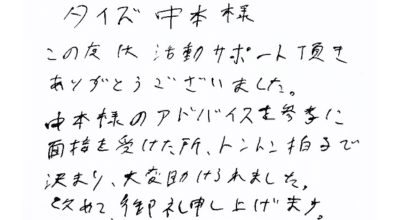 タイズ 中本様
この度は 活動サポート頂き
ありがとうございました。
中本様のアドバイスを参考に
面接を受けた所、トントン拍子で
決まり、大変助けられました。
改めて、御礼申し上げます。